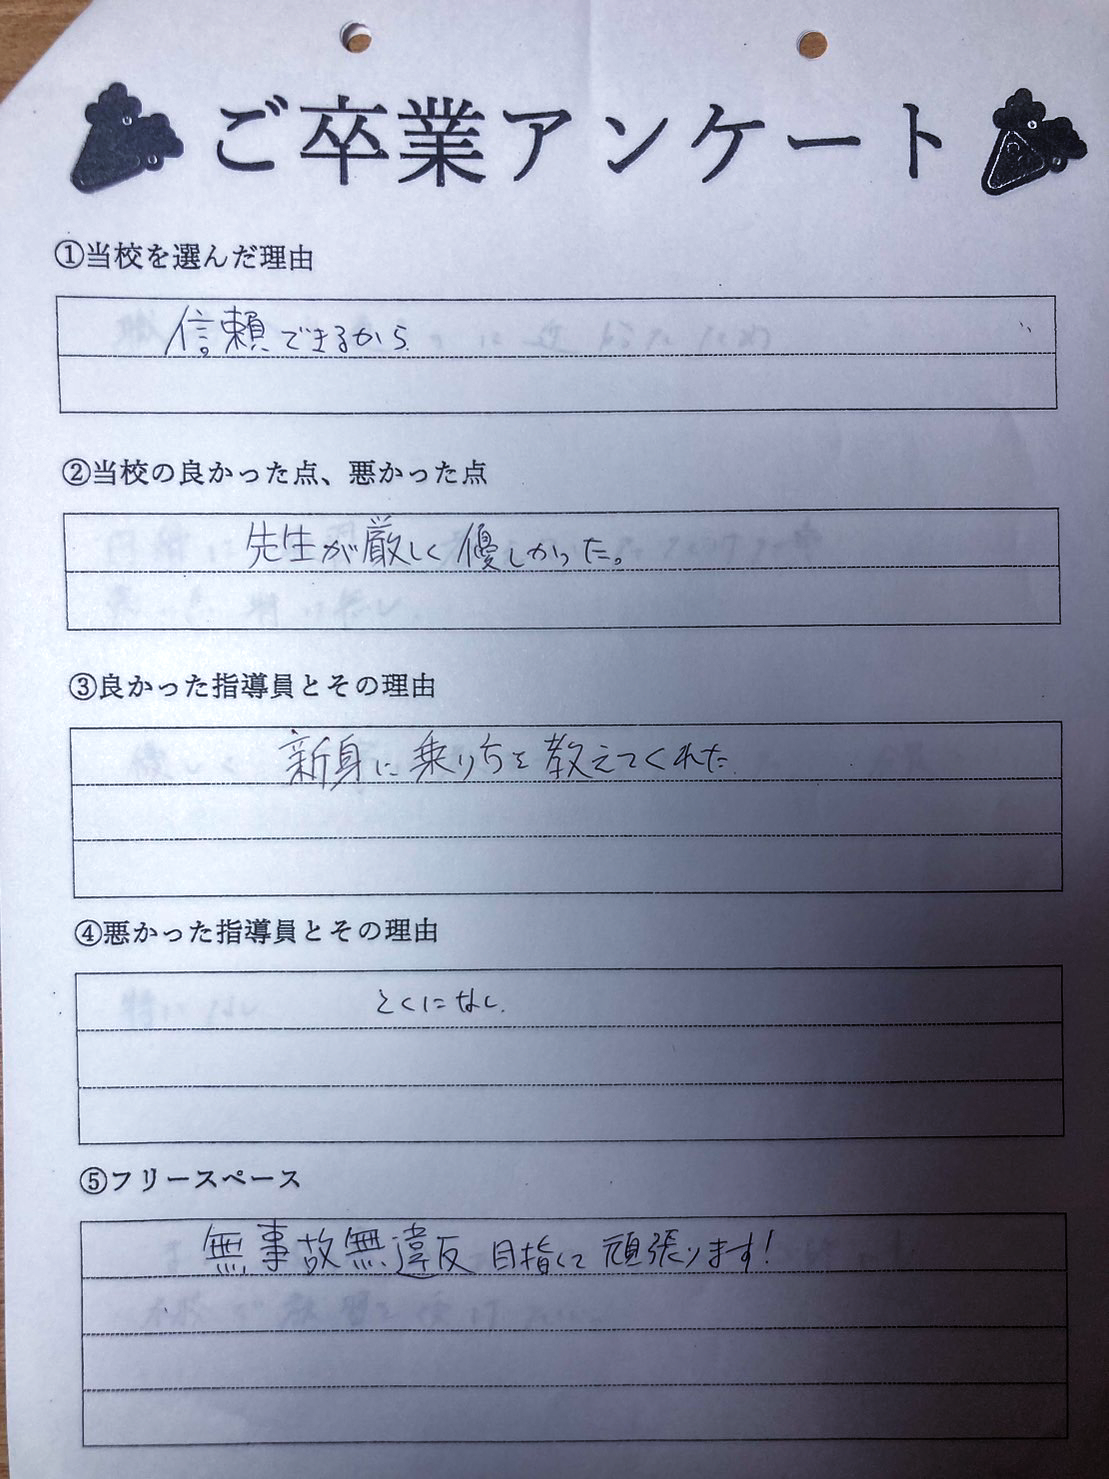 ご卒業アンケート
①当校を選んだ理由
信頼できるから
②当校の良かった点、悪かった点
先生が厳しく優しかった。
③良かった指導員とその理由
新身に乗り方を教えてくれた
④悪かった指導員とその理由
とくになし.
⑤フリースペース
無事故無違反目指して頑張ります!